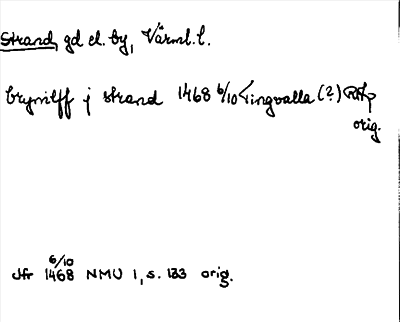 Strand, gd el. by, Värml. l.
brynilff j strand 1468 6/10 Tingvalla (?) RAp
orig.
Jfr 1468 6/10 NMU 1, s. 133 orig.